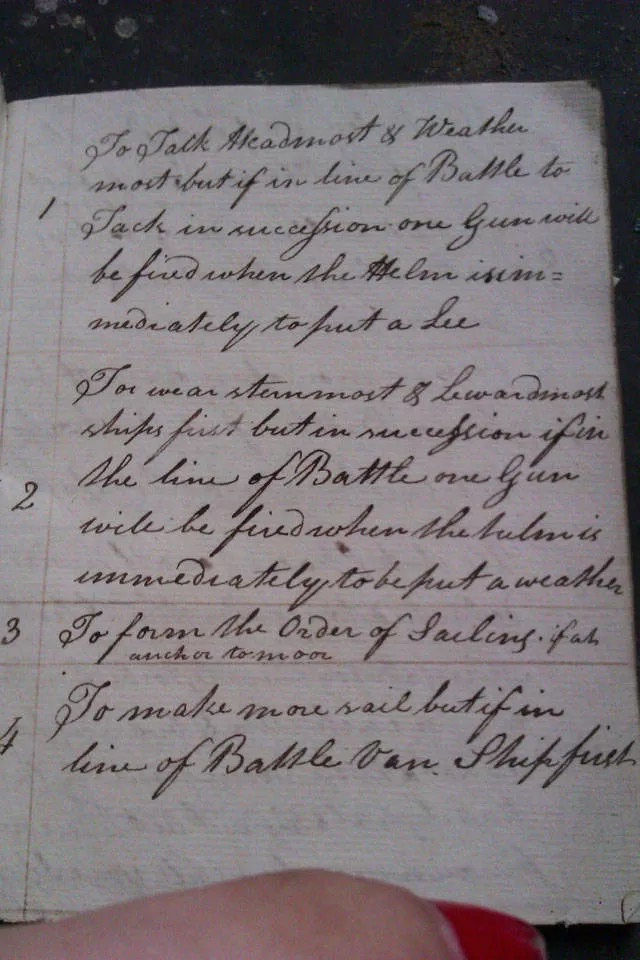 To Talk Headmost & Weather
most but if in line of Battle to
1 Tack in succession one Gun will
be fired when the Helm is im=
mediately to put a Lee
To wear sternmost & Lewardmost
ships first but in succession if in
the line of Battle one Gun
2 will be fired when the helm is
immediately to be put a weather
3 To form the Order of Sailing. if at
anchor to moor
To make more sail but if in
4 line of Battle Van Ship first